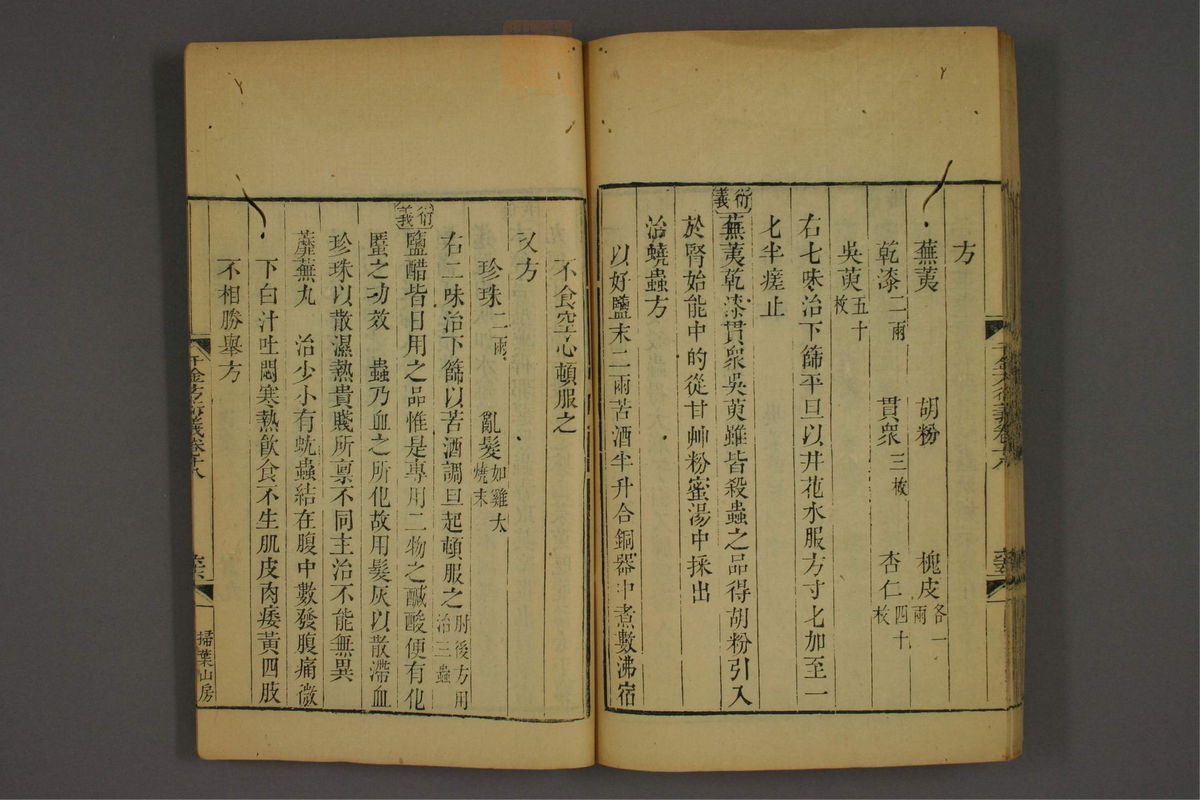 方
蕪荑　胡粉　槐皮各一兩
乾漆二兩　貫衆三枚　杏仁四十枚
吳萸五十枚
右七味治下篩平旦以井花水服方寸匕加至一
匕半瘥止
衍義蕪荑乾漆貫衆吳萸雖皆殺蟲之品得胡粉引入
於腎始能中的從甘艸粉蜜湯中採出
治蟯蟲方
以好鹽末二兩苦酒半升合銅器中煮數沸宿
不食空心頓服之
又方
珍珠二兩　亂髮如雞大燒末
右二味治下篩以苦酒調旦起頓服之肘後方用治三蟲
衍義鹽醋皆日用之品惟是專用二物之鹹酸便有化
蜃之功效　蟲乃血之所化故用髮灰以散滯血
珍珠以散濕熱貴賤所禀不同主治不能無異
蘼蕪丸　治少小有蚘蟲結在腹中數發腹痛微
下白汁吐悶寒熱飲食不生肌皮肉痿黃四肢
不相勝舉方
千金方衍義卷十八
掃葉山房